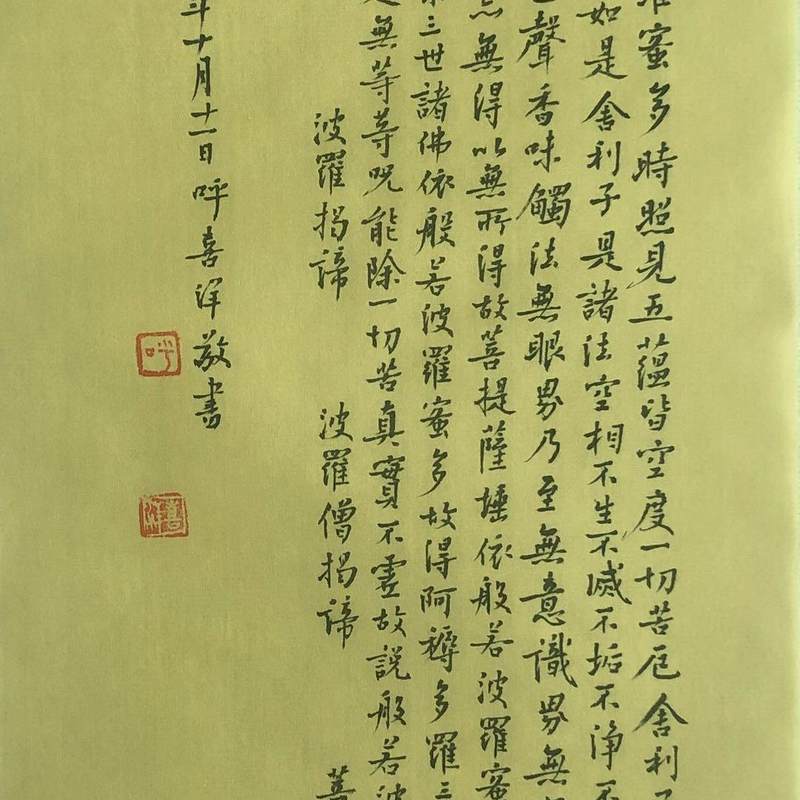 蜜多時照見五蘊皆空度一切苦厄舍利
如是舍利子是諸法空相不生不滅不垢不淨不
聲香味觸法無眼界乃至無意識界無
無得以無所得故菩提薩埵依般若波羅蜜
三世諸佛依般若波羅蜜多故得阿耨多羅三
無等等呪能除一切苦真實不虛故說般若波
波羅揭諦 波羅僧揭諦 菩
年十月十一日呼喜洋敬書
呼